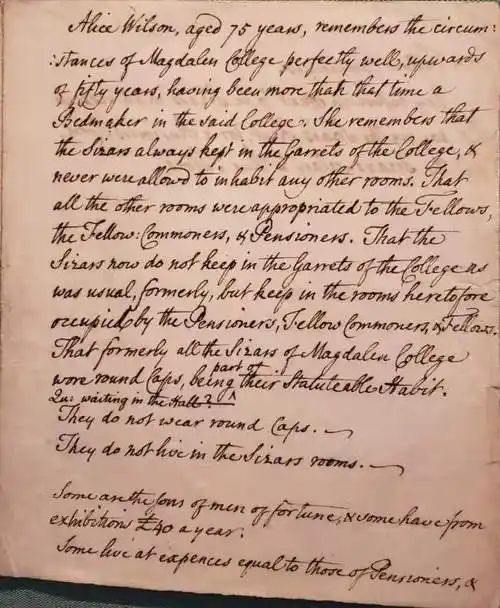 Alice Wilson, aged 75 years, remembers the circum:
:stances of Magdalen College perfectly well, upwards
of fifty years, having been more than that time a
Bedmaker in the said College. She remembers that
the Sizars always kept in the Garrets of the College, &
never were allow'd to inhabit any other rooms. That
all the other rooms were appropriated to the Fellows,
the Fellow: Commoners, & Pensioners. That the
Sizars now do not keep in the Garrets of the College as
was usual, formerly, but keep in the rooms heretofore
occupied by the Pensioners, Fellow Commoners, & Fellows.
That formerly all the Sizars of Magdalen College
wore round Caps, being part of their Statuteable Habit.
Qu: waiting in the Hall?
They do not wear round Caps. —
They do not live in the Sizars rooms. —
Some are the sons of men of fortune, & some have from
exhibitions £40 a year.
Some live at expences equal to those of Pensioners, &